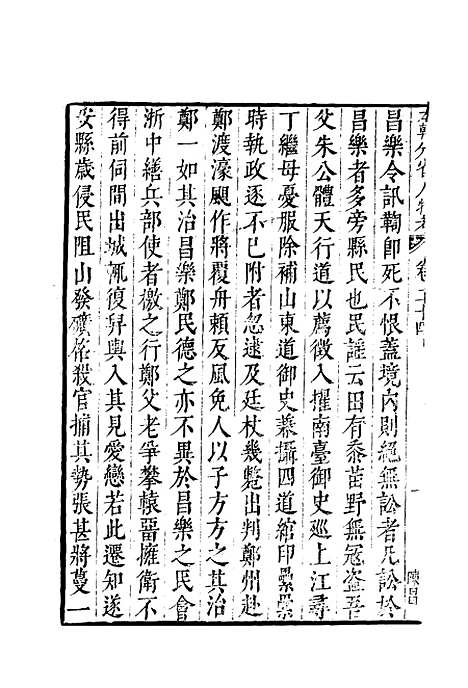 本朝分省人物考 卷
昌樂令訊鞫即死不恨蓋境內則絕無訟者凡訟於
昌樂者多旁縣民也民謡云田有黍苗野無冦盗吾
父朱公體天行道以薦徵入擢南臺御史巡上江尋
丁繼母憂服除補山東道御史兼攝四道綰印纍纍
時執政逐不已附者忽逮及廷杖幾斃出判鄭州赴
鄭渡濠颶作將覆舟頼反風免人以子方方之其治
鄭一如其治昌樂鄭民德之亦不異於昌樂之民會
浙中繕兵部使者檄之行鄭父老爭攀轅畱擁衛不
得前伺間出城輒復舁輿入其見愛戀若此遷知遂
安縣歲侵民阻山發礦格殺官捕其勢張甚將蔓一